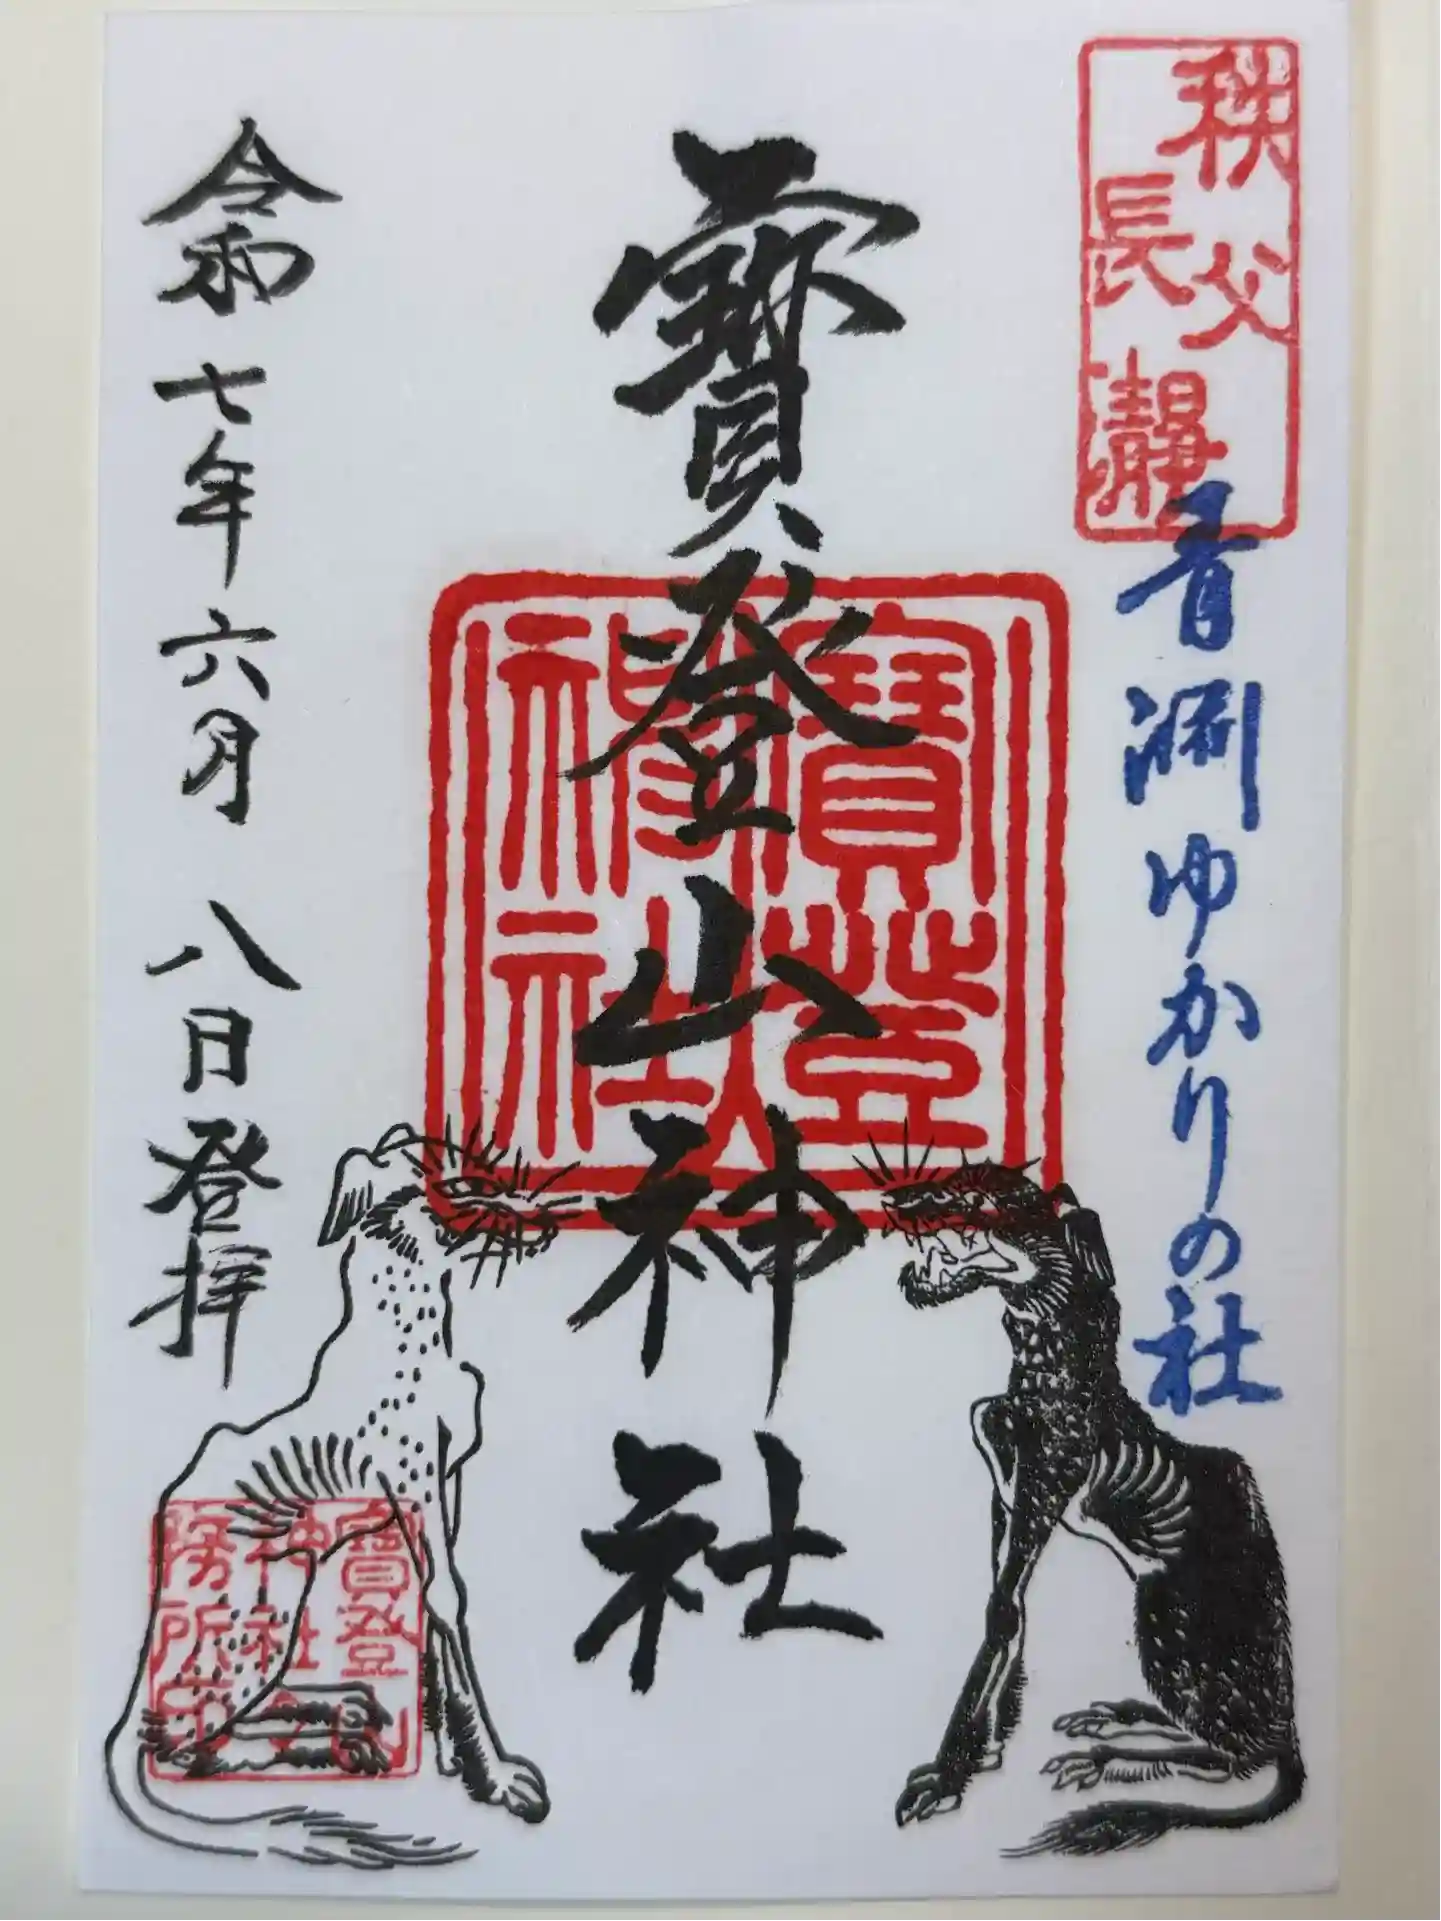 秩父
長瀞
青淵ゆかりの社
寳登山神社
寳登山
神社
令和七年六月八日登拝
寳登山
神社之
務所印